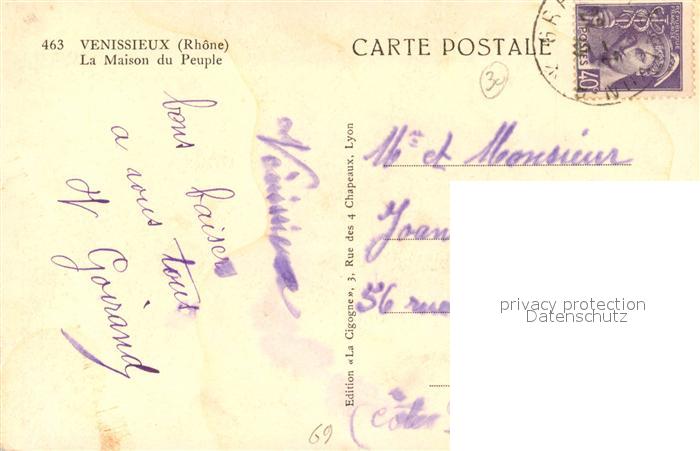 463 VENISSIEUX (Rhône)
La Maison du Peuple
CARTE POSTALE
30
POSTES 40c
bons baisers
a vous tous
Goirand
Vénissieux
Edition «La Cigogne», 3, Rue des 4 Chapeaux, Lyon
Mme et Monsieur
Joan
56 rue
(côte
69
privacy protection
Datenschutz